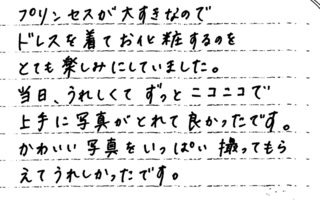 プリンセスが大すきなので
ドレスを着てお化粧するのを
とても楽しみにしていました。
当日、うれしくてずっとニコニコで
上手に写真がとれて良かったです。
かわいい写真をいっぱい撮ってもら
えてうれしかったです。